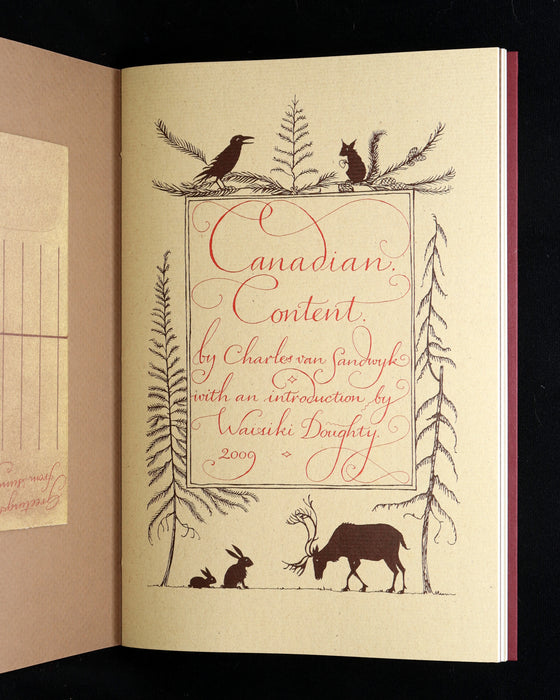 Canadian.
Content.
by Charles van Sandwyk
with an introduction by
Waisiki Doughty.
2009
Greetings
from